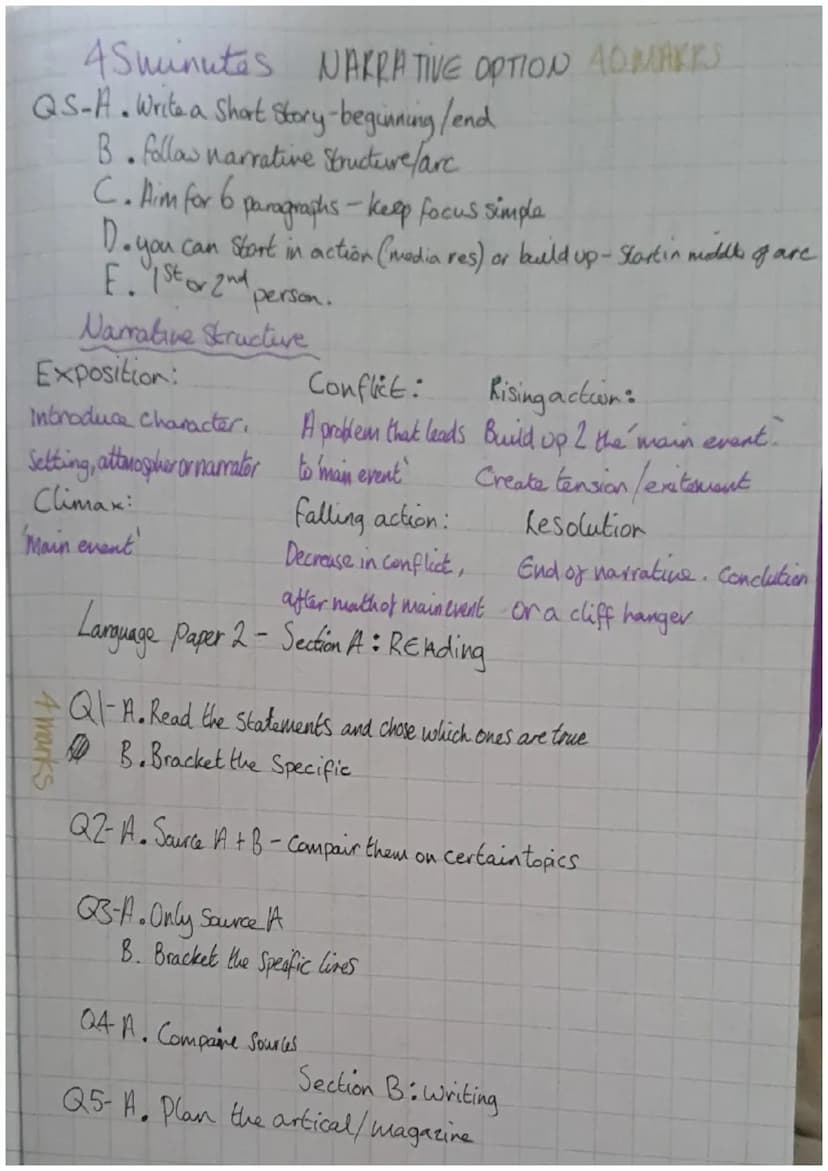 45minutes NARRATIVE OPTION 40 MARKS
Q5-A. Write a short story-beginning/end
B. follow narrative structure/arc
C. Aim for 6 paragraphs - keep focus simple
D. you can start in action (media res) or build up - start in middle of arc
E. 1st or 2nd person.
Narrative Structure
Exposition: Conflict: Rising action:
Introduce character, A problem that leads Build up 2 the 'main event'
Setting, attmospher or narrator to 'main event' Create tension/exitement
Climax: falling action: Resolution
'Main event' Decrease in conflict, End of narrative. Conclution
after math of main event or a cliff hanger
Language Paper 2 - Section A: REAding
4 marks
Q1-A. Read the statements and chose which ones are true
B. Bracket the Specific
Q2-A. Source A + B - Compair them on certain topics
Q3-A. Only Source A
B. Bracket the speific lines
Q4-A. Compaire sources
Section B: Writing
Q5-A. Plan the artical/magazine